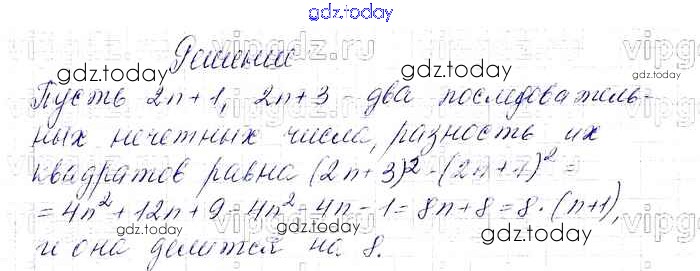 gdz.today
Решение
Пусть 2n+1, 2n+3 - два последователь-
ных нечетных числа, разность их
квадратов равна (2n+3)² - (2n+7)² =
= 4n² + 12n + 9 - 4n² - 4n - 1 = 8n + 8 = 8 · (n+1),
и она делится на 8.
gdz.today
gdz.today
gdz.today
gdz.today
gdz.today
gdz.today
vipgdz.ru
vipgdz.ru